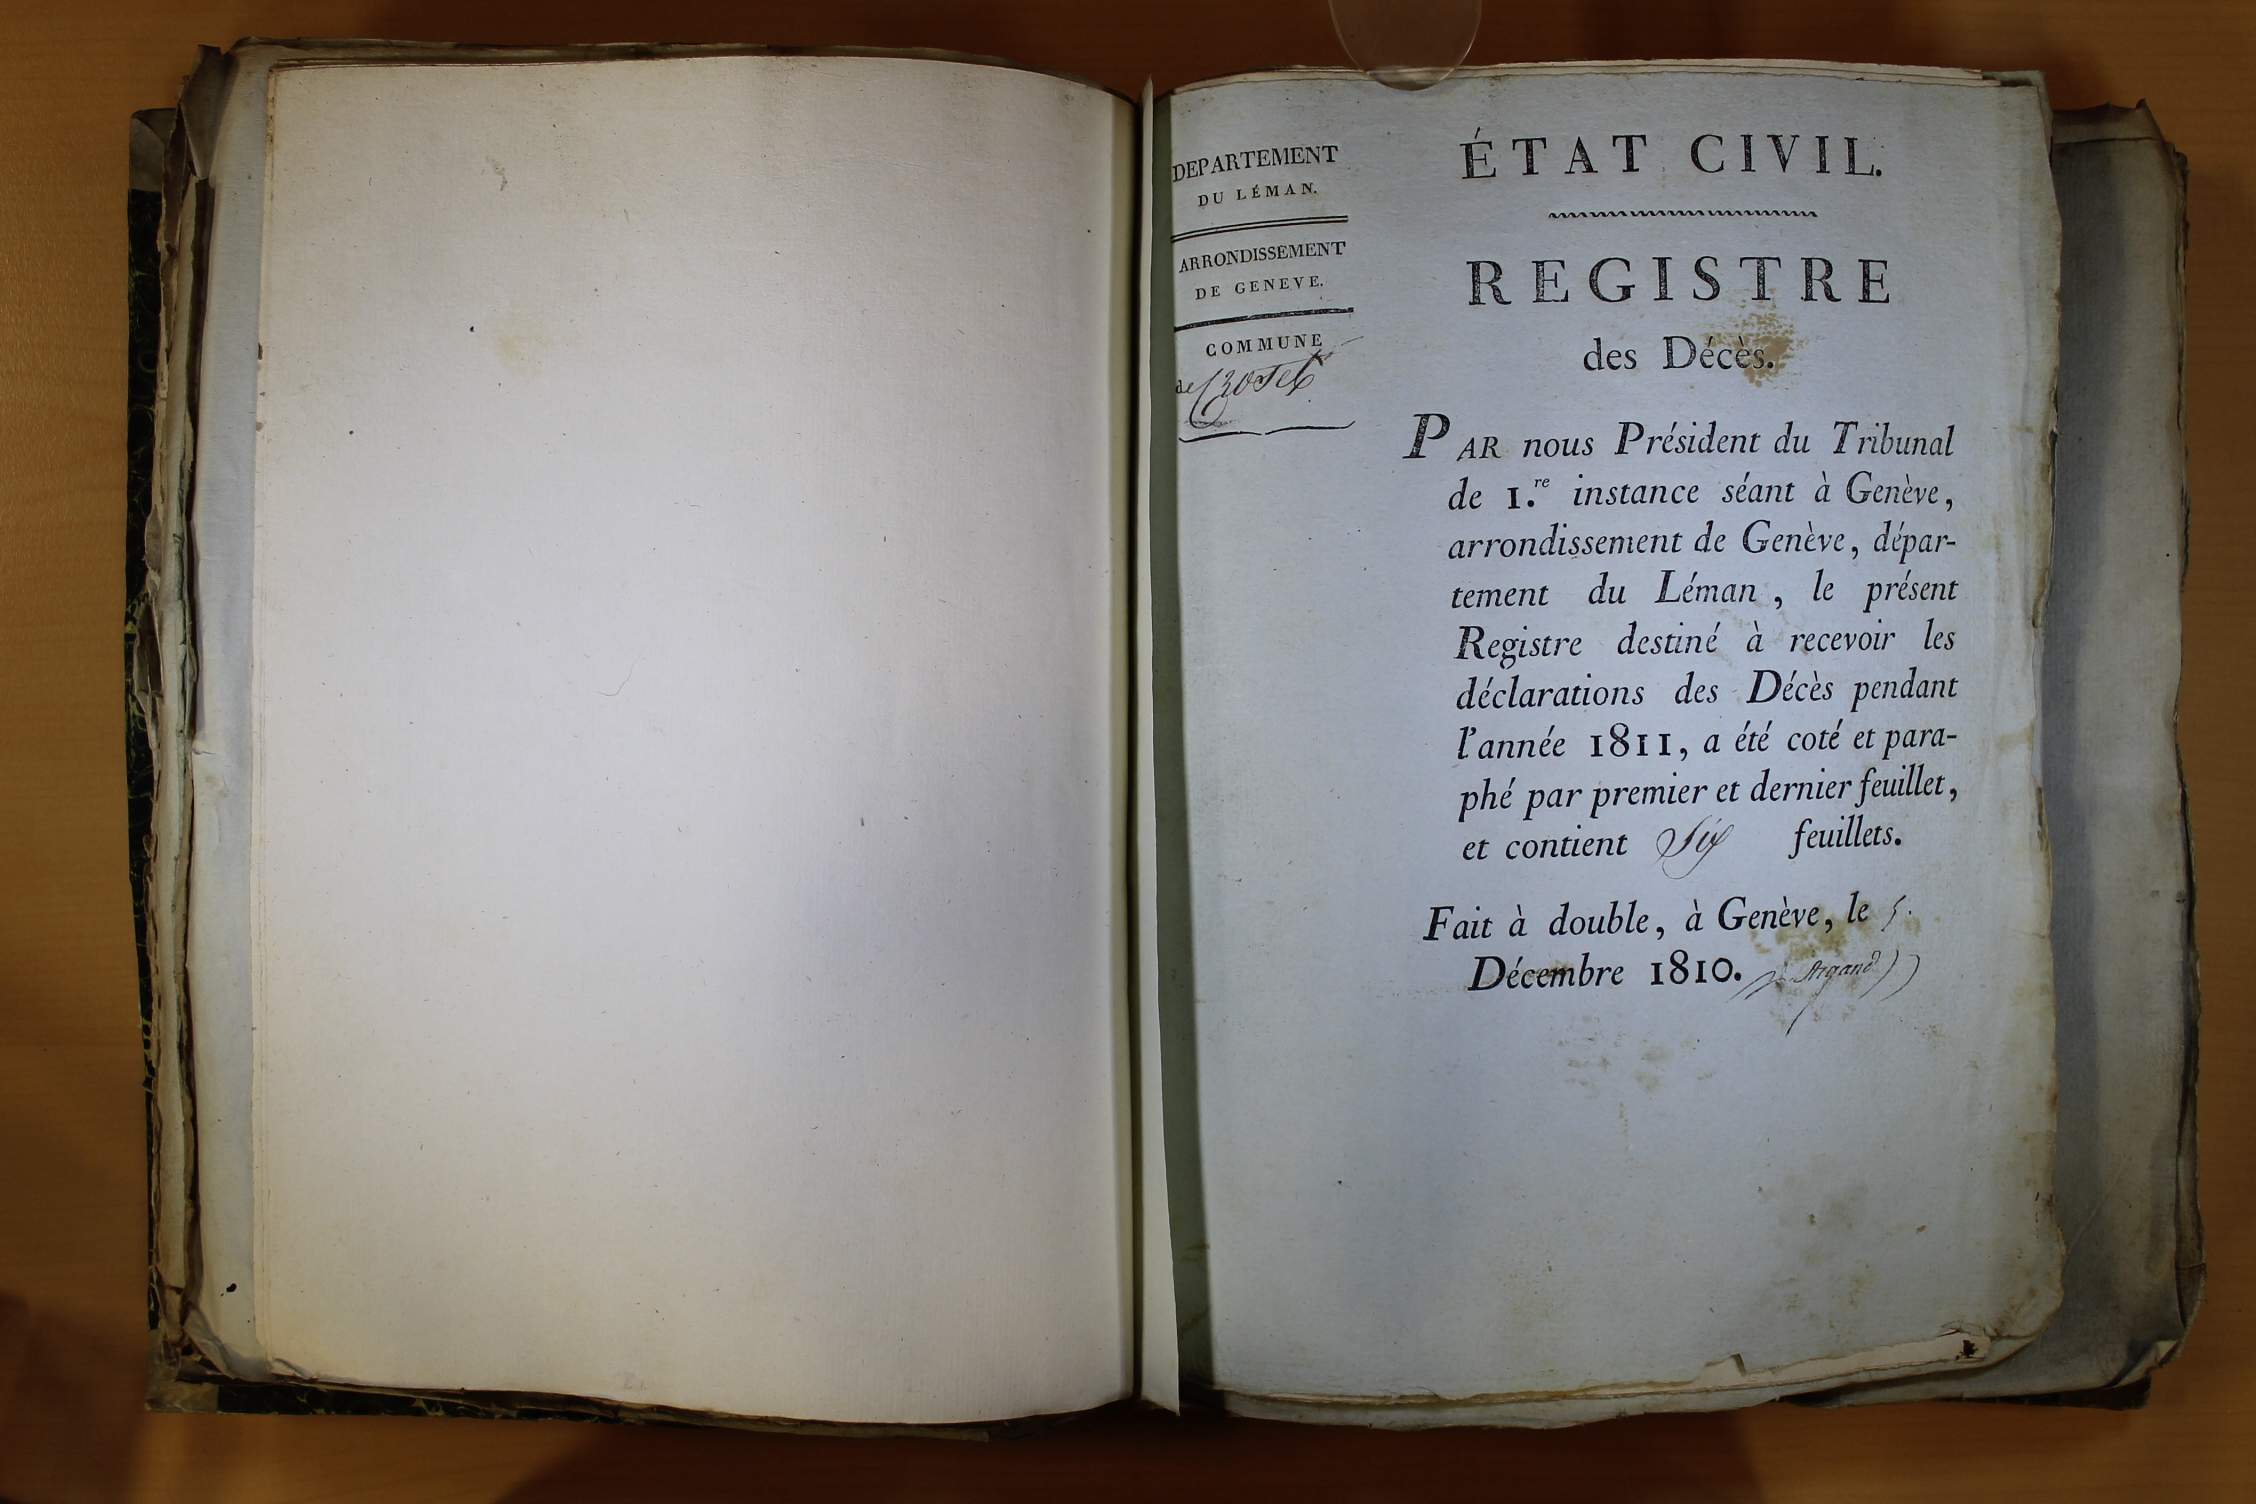 DEPARTEMENT
DU LÉMAN.
ARRONDISSEMENT
DE GENEVE.
COMMUNE
de Crozet
ÉTAT CIVIL.
REGISTRE
des Décès.
PAR nous Président du Tribunal
de 1.re instance séant à Genève,
arrondissement de Genève, dépar-
tement du Léman, le présent
Registre destiné à recevoir les
déclarations des Décès pendant
l'année 1811, a été coté et para-
phé par premier et dernier feuillet,
et contient Six feuillets.
Fait à double, à Genève, le 5.
Décembre 1810. Argand